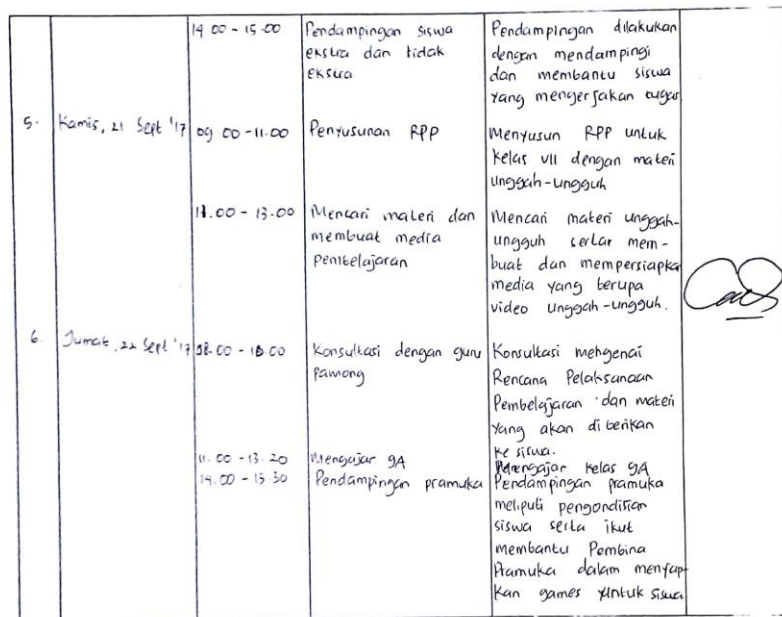 14.00 - 15.00
Pendampingan siswa
ekstra dan tidak
ekstra
Pendampingan dilakukan
dengan mendampingi
dan membantu siswa
yang mengerjakan tugas
5.
Kamis, 21 Sept '17
09.00 - 11.00
Penyusunan RPP
Menyusun RPP untuk
Kelas VII dengan materi
unggah-ungguh
11.00 - 13.00
Mencari materi dan
membuat media
pembelajaran
Mencari materi unggah-
ungguh serta mem-
buat dan mempersiapka
media yang berupa
video unggah-ungguh.
6.
Jumat, 22 Sept '17
08.00 - 10.00
Konsultasi dengan guru
Pamong
Konsultasi mengenai
Rencana Pelaksanaan
Pembelajaran dan materi
yang akan diberikan
ke siswa.
11.00 - 13.20
Mengajar 9A
Mengajar kelas 9A
14.00 - 15.30
Pendampingan pramuka
Pendampingan pramuka
meliputi pengondisian
siswa serta ikut
membantu Pembina
Pramuka dalam menyiap
kan games untuk siswa